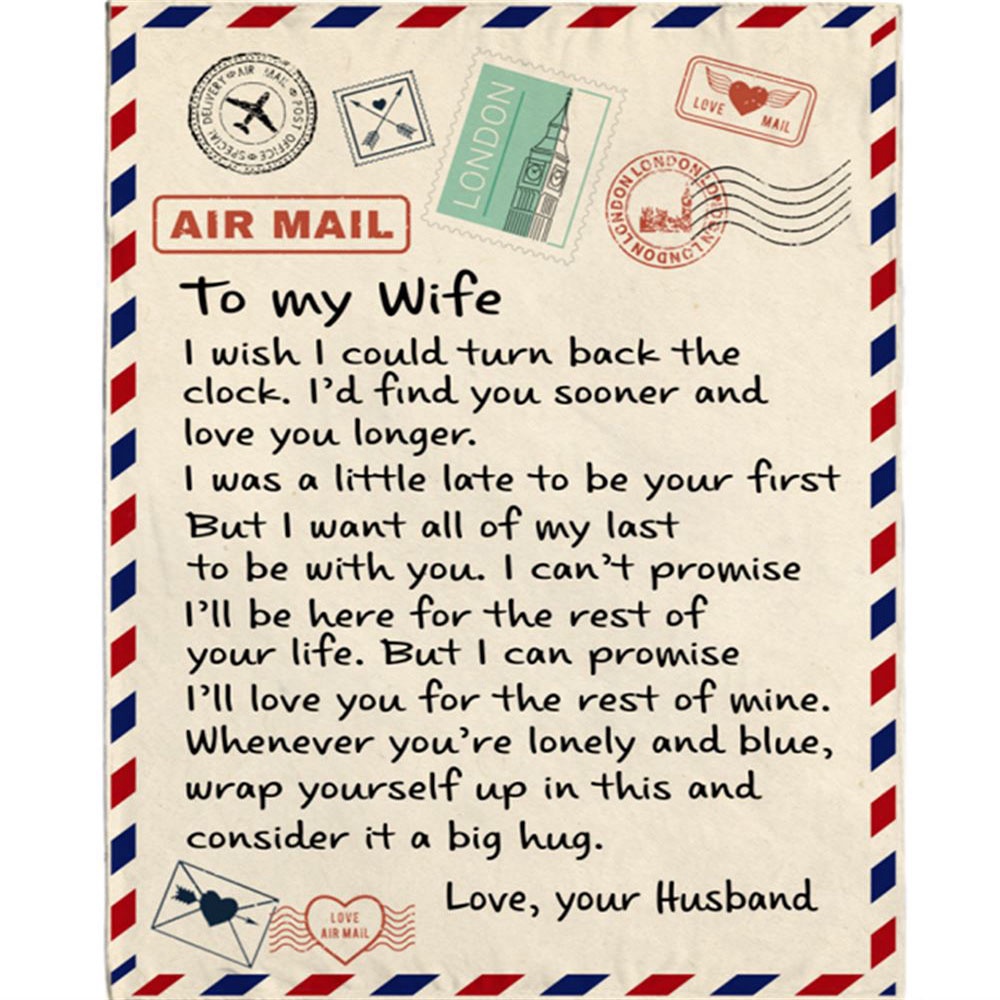 SPECIAL DELIVERY AIR MAIL POST OFFICE
LONDON
LOVE MAIL
LONDON LONDON LONDON LONDON
AIR MAIL
To my Wife
I wish I could turn back the
clock. I'd find you sooner and
love you longer.
I was a little late to be your first
But I want all of my last
to be with you. I can't promise
I'll be here for the rest of
your life. But I can promise
I'll love you for the rest of mine.
Whenever you're lonely and blue,
wrap yourself up in this and
consider it a big hug.
Love, your Husband
LOVE
AIR MAIL